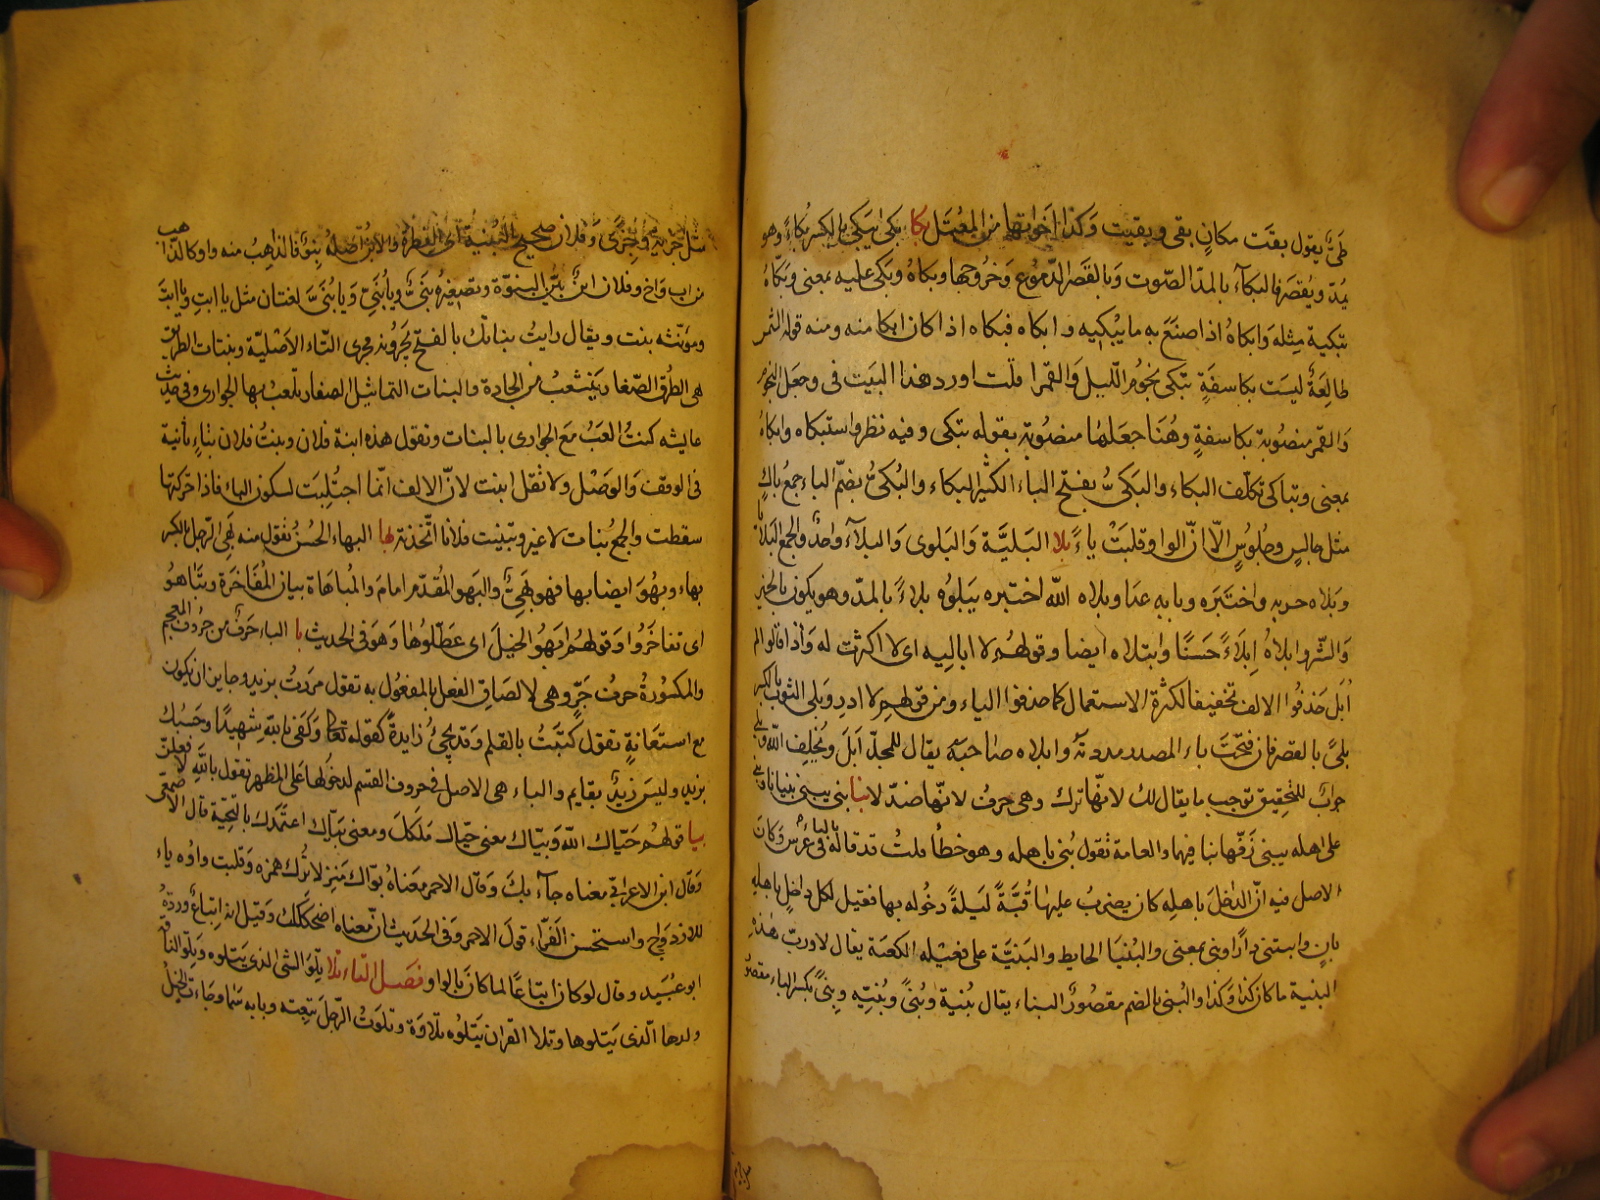 طيّ يقول بقت مكان بقى وبقيت وكذا اخواتها من المعتل بكا بكى يبكي بالكسر بكاءً وهو
يمدّ ويقصر فالبكآء بالمدّ الصّوت وبالقصر الدّموع وخروجها وبكاهُ وبكى عليه بمعنى وبكّاهُ
تبكية مثله وابكاهُ اذا صنع به ما يبكيه و ابكاه فبكاه اذا كان ابكا منه ومنه قوله الشمر
طالعةٌ ليست بكاسفةٍ تبكى نجوم اللّيل والقمرا قلت اورد هذا البيت فى وجعل النجوم
والقمر منصوبة بكاسفةٍ وهُنا جعلها منصوبة بقوله تبكى وفيه نظر واستبكاه وابكاهُ
بمعنى وتباكى تكلّف البكاء والبكىُّ بفتح الباء الكثير البكاء والبُكىُّ بضمّ الباء جمع باكٍ
مثل جالسٍ وجُلوُسٍ الّا انّ الواو قلبتْ ياءً بلا البليَّة والبلوى والبلآء واحدٌ والجمع البلايا
وبلاه جربه واختبره وبابه عدا وبلاه اللّه اختبره يبلُوه بلاءً بالمدّ وهو يكون بالخير
والشّر وابلاهُ إبلاءً حسنًا وابتلاه ايضا وقولهُم لا اباليه اى لا اكترث له واذا قالوا لم
اُبَل حذفُوا الالف تخفيفا لكثرة الاستعمال كما حذفوا الياء من قولهم لا ادرِ وبلى الثوب بالكسر
بلىً بالقصر فان فتحتَ باء المصدر مددتَهُ وابلاه صاحبه يقال للمجدّ أبلِ ويُخلِف اللّه وبلى
جوابٌ للتحقيق توجب ما يقال لك لانّها ترك وهى حرفٌ لانّها ضدّ لا بنا بنى يبنى بنيانا وبنى
على اهله يبنى زفّها بنا فيهما والعامة تقول بُنى باهله وهو خطأ قلتُ قد قاله بالباء فى عرس وكان
الاصل فيه انّ الداخل باهله كان يضرب عليها قُبَّةً ليلةً دخُوله بها فقيل لكل داخلٍ باهله
بانٍ وابتنى دارًا وبنى بمعنى والبُنيا الحايط والبَنيَّة على فعيلة الكعبة يقال لا وربّ هذه
البنية ما كان كذا وكذا والبُنى بالضم مقصورٌ البناء يقال بُنيةٌ وبُنىً وبِنيةٌ وبِنىً بكسر الباء مقصورٌ
مثل جزية وجِزًى وفلان صحيح البُنية اى الفطرة والابن اصله بنوٌ فالذاهب منه واو كما ذهب
من اب واخٍ وفلان ابنٌ بيّن البنوّة وتصغيرهُ بُنىٌّ ويا بُنىِّ ويا بُنىَّ لغتان مثل يا ابتِ ويا ابتَ
ومؤنّثه بنت ويقال رايتُ بناتَك بالفتح يجرُونه مجرى التّاء الاصْليّة وبنيات الطريق
هى الطُرق الصّغار يتشعبُ من الجادة والبنات التماثيل الصغار يلعب بها الجوارى وفى حديث
عايشه كنتُ العبُ مع الجوارى بالبنات وتقول هذه ابنة فلان وبنتُ فلان بتاءٍ ثابتةٍ
فى الوقف والوصْل ولا تقل ابنت لانّ الالف انّما اجتُلبت لسكون الباء فاذا حركتها
سقطت والجمع بُنات لا غير وتبنيت فلانا اتّخذته بها البهاء الحُسنُ تقول منه بهَى الرّجل بالكسر
بهاء وبهُوَ ايضا بها فهو بَهِىٌّ والبهو المُقدّم امام والمُباهاة بيان المُفاخرة وتباهوا
اى تفاخرُوا وقولهُم ابهُوا الخيلَ اى عطّلُوها وهو فى الحديث با الباء حرفٌ من حرُوف المعجم
والمكسُورة حرفُ جَرّ وهى لالصاق الفعل بالمفعُول به تقول مررتُ بزيد وجايز ان يكون
مع استعانةٍ تقول كتبتُ بالقلم وقد يجئ زايدةً كقوله تعا وكفى باللّه شهيدًا وحسبُك
بزيدٍ وليس زيدٌ بقايم والباء هى الاصل فى حروف القسم لدخولها على المظهر تقول باللّه لافعلنّ
بيا قولهُم حيّاك اللّه وبيّاك معنى حيّاك ملّككَ ومعنى بيّاك اعتمدك بالتّحيّة قال الاصمعى
وقال ابن الاعرابىّ معناه جآء بكَ وقال الاحمر معناهُ بوّاك منزلا ترُك همزه وقلبت واوُه ياء
للازدواج واستحسن الفرّاء قول الاحمر وفى الحديث انّ معناه اضحككَ وقيل انه اتباعٌ وردّهُ
ابو عبيد وقال لو كان اتباعًا لما كان بالواو فصل التاء تلا تِلوُ الشئ الذى يتلوه وتِلوُ الناقة
ولدها الّذى يتلوها وتلا القران يتلوُه تلاوة وتلوتُ الرّجل تبعته وبابه سما وجاءت الخيلُ